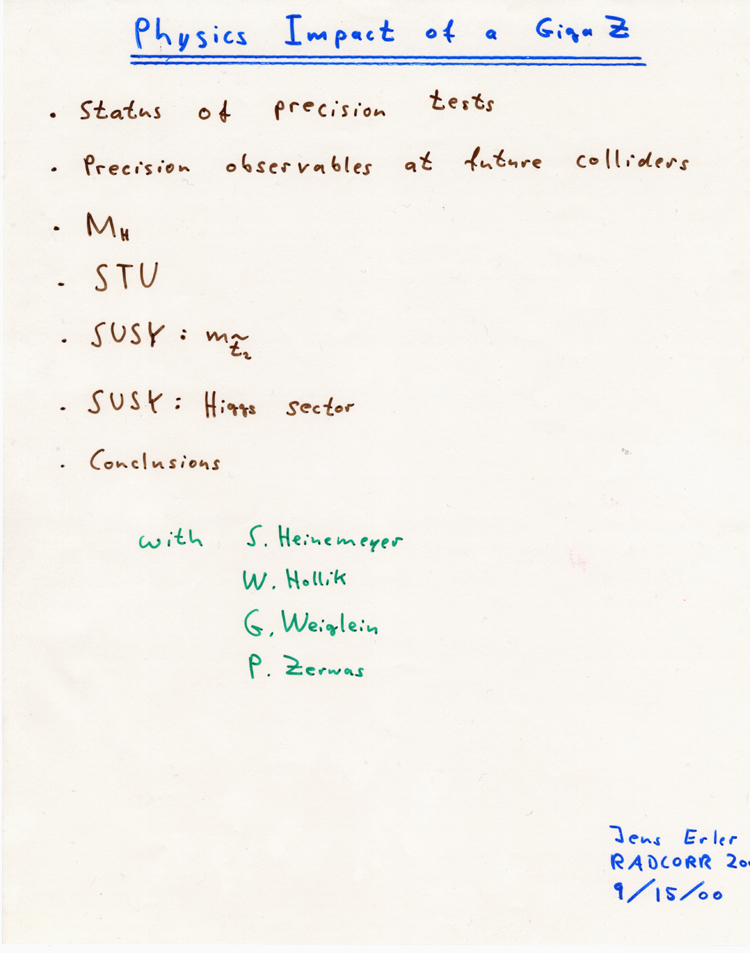 Physics Impact of a Giga Z
· Status of precision tests
· Precision observables at future colliders
· M_H
· STU
· SUSY : m_t̃₂
· SUSY : Higgs sector
· Conclusions
with S. Heinemeyer
W. Hollik
G. Weiglein
P. Zerwas
Jens Erler
RADCORR 200
9/15/00